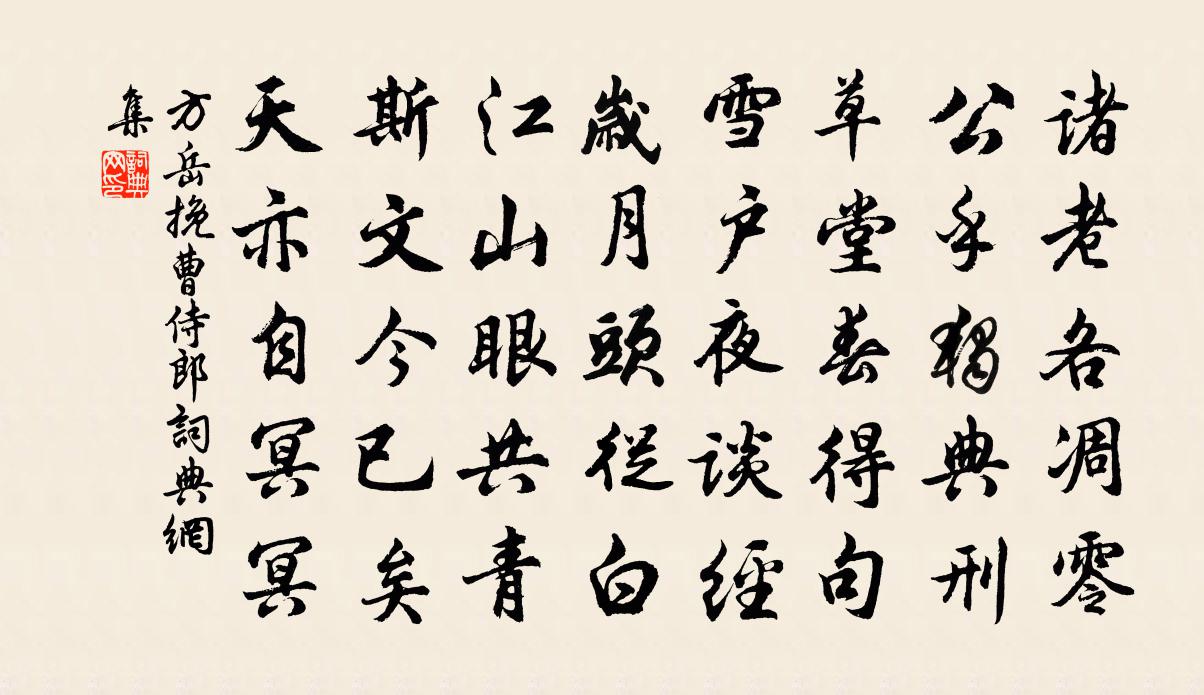 诸老各凋零
公乎独典刑
草堂春得句
雪户夜谈经
歲月頭從白
江山眼共青
斯文今已矣
天亦自冥冥
方岳挽曹侍郎詞典網
集
詞典
网印